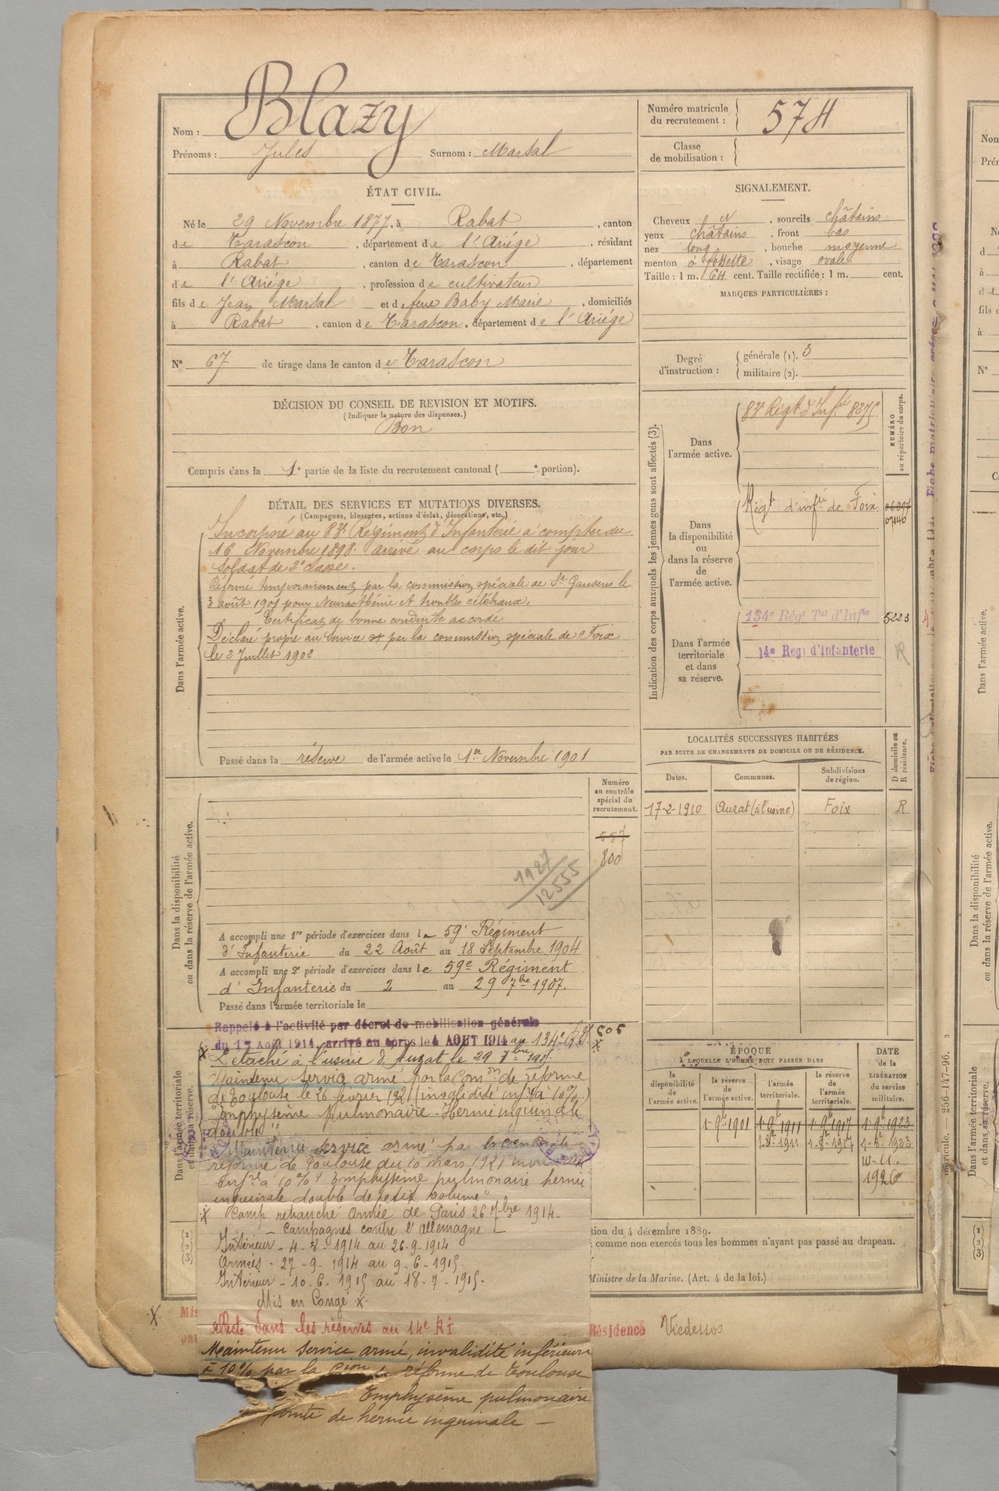 Nom : Blazy
Prénoms : Jules Surnom : Marsal
Numéro matricule du recrutement : 574
Classe de mobilisation :
ÉTAT CIVIL.
Né le 29 Novembre 1877, à Rabat, canton
de Tarascon, département de l'Ariége, résidant
à Rabat, canton de Tarascon, département
de l'Ariége, profession de cultivateur
fils de Jean Marsal et de feue Baby Marie, domiciliés
à Rabat, canton de Tarascon, département de l'Ariége
N° 67 de tirage dans le canton de Tarascon
SIGNALEMENT.
Cheveux et, sourcils châtains
yeux châtains, front bas
nez long, bouche moyenne
menton à fossette, visage ovale
Taille : 1 m. 64 cent. Taille rectifiée : 1 m. cent.
MARQUES PARTICULIÈRES :
Degré d'instruction : générale (1). 3
militaire (2).
DÉCISION DU CONSEIL DE REVISION ET MOTIFS.
(Indiquer la nature des dispenses.)
Bon
Compris dans la 1e partie de la liste du recrutement cantonal ( e portion).
DÉTAIL DES SERVICES ET MUTATIONS DIVERSES.
(Campagnes, blessures, actions d'éclat, décorations, etc.)
Dans l'armée active.
Incorporé au 83e Régiment d'Infanterie à compter du
16 Novembre 1898. arrivé au corps le dit jour
Soldat de 2e classe.
Réformé temporairement par la commission spéciale de St Gaudens le
3 août 1901 pour Neurasthénie et troubles cérébraux.
Certificat de bonne conduite accordé
Déclaré propre au service par la commission spéciale de Foix
le 2 Juillet 1902
Passé dans la réserve de l'armée active le 1er Novembre 1901
Indication des corps auxquels les jeunes gens sont affectés (3).
NUMÉRO au répertoire du corps.
Dans l'armée active.
83e Régt d'Infie 8375
Dans la disponibilité ou dans la réserve de l'armée active.
Régt d'infie de Foix
Dans l'armée territoriale et dans sa réserve.
134e Régt Tal d'Infie 5223
14e Régt d'Infanterie R
LOCALITÉS SUCCESSIVES HABITÉES
PAR SUITE DE CHANGEMENTS DE DOMICILE OU DE RÉSIDENCE.
Dates. Communes. Subdivisions de région. D domicile ou R résidence.
17-2-1910 Auzat (à l'usine) Foix R
Numéro au contrôle spécial du recrutement.
557
800
1927
12555
Dans la disponibilité ou dans la réserve de l'armée active.
A accompli une 1re période d'exercices dans le 59e Régiment
d'Infanterie du 22 Août au 18 Septembre 1904
A accompli une 2e période d'exercices dans le 59e Régiment
d'Infanterie du 2 au 29 7bre 1907.
Passé dans l'armée territoriale le
Dans l'armée territoriale et dans sa réserve.
Rappelé à l'activité par décret de mobilisation générale
du 1er Août 1914, arrivé au corps le 4 AOUT 1914 au 134e
Détaché à l'usine d'Auzat le
Maintenu service armé par la Comon de réforme
de Toulouse le 26 février 1921 (invalidité infre à 10%)
"Emphysème pulmonaire hernie inguinale
double"
Maintenu service armé par la
réforme de Toulouse du 10 mars 1921 invalidité
infre à 10% "Emphysème pulmonaire hernie
inguinale double de petit volume"
Camp retranché armée de Paris 26 7bre 1914.
Campagnes contre l'Allemagne
Intérieur - 4-8-1914 au 26-9-1914
Armées - 27-9-1914 au 9-6-1915
Intérieur - 10-6-1915 au 18-7-1915.
Mis en Congé x
Affecté dans les réserves au 14e RI
Maintenu service armé, invalidité inférieure
à 10% par la Cion de réforme de Toulouse
Emphysème pulmonaire
pointe de hernie inguinale —
ÉPOQUE
À LAQUELLE L'HOMME DOIT PASSER DANS
DATE de la LIBÉRATION du service militaire.
la disponibilité de l'armée active. la réserve de l'armée active. l'armée territoriale. la réserve de l'armée territoriale.
1-9bre 1901 1-9bre 1911 1-9bre 1917 1-9bre 1923
10-11.
1926
tion du 4 décembre 1889.
comme non exercés tous les hommes n'ayant pas passé au drapeau.
Ministre de la Marine. (Art. 4 de la loi.)
Résidence Vicdessos